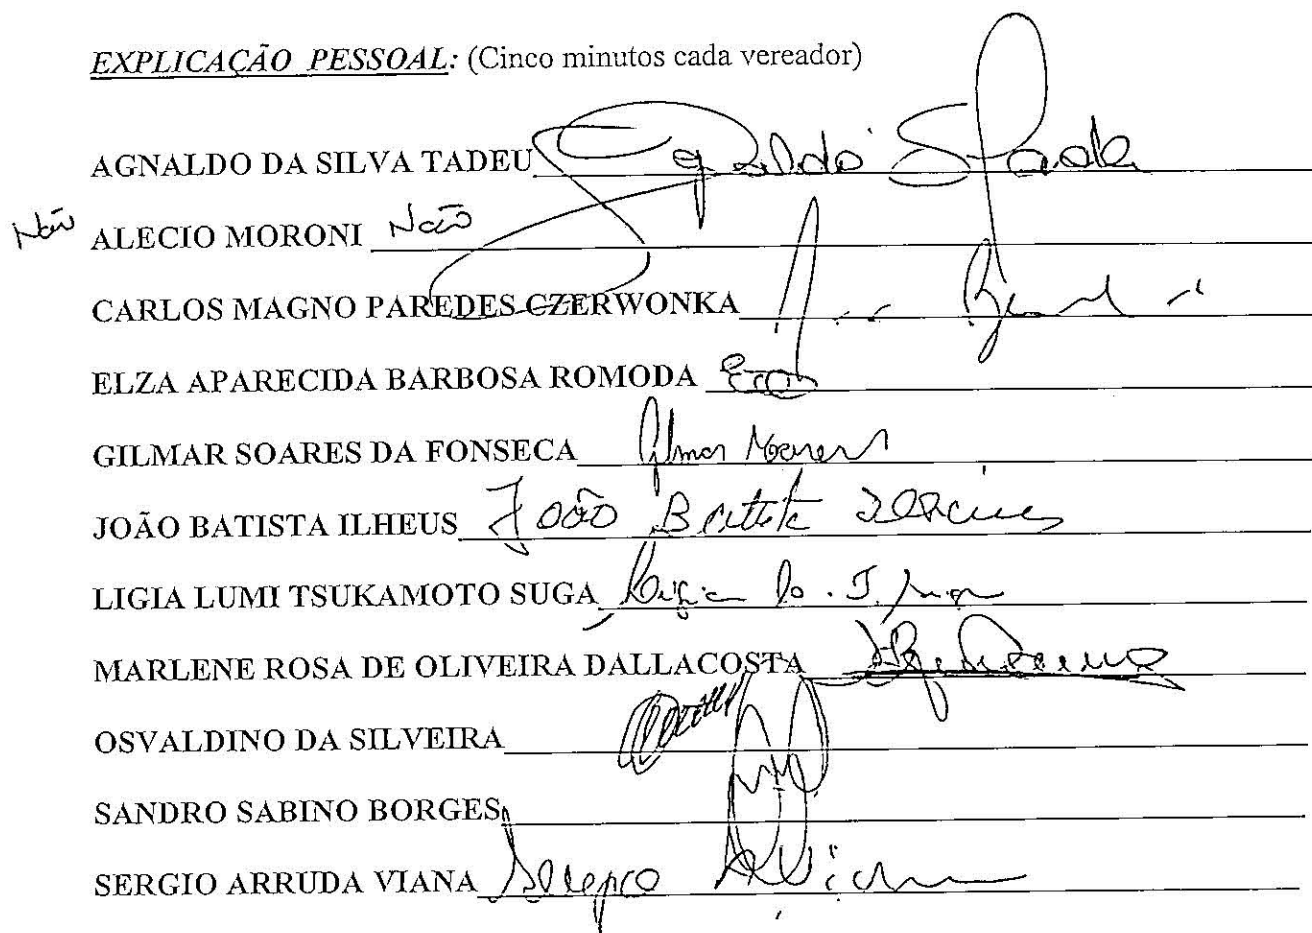 EXPLICAÇÃO PESSOAL: (Cinco minutos cada vereador)
AGNALDO DA SILVA TADEU
Não ALECIO MORONI Não
CARLOS MAGNO PAREDES CZERWONKA
ELZA APARECIDA BARBOSA ROMODA
GILMAR SOARES DA FONSECA Gilmar
JOÃO BATISTA ILHEUS João Batista Ilheus
LIGIA LUMI TSUKAMOTO SUGA
MARLENE ROSA DE OLIVEIRA DALLACOSTA
OSVALDINO DA SILVEIRA
SANDRO SABINO BORGES
SERGIO ARRUDA VIANA